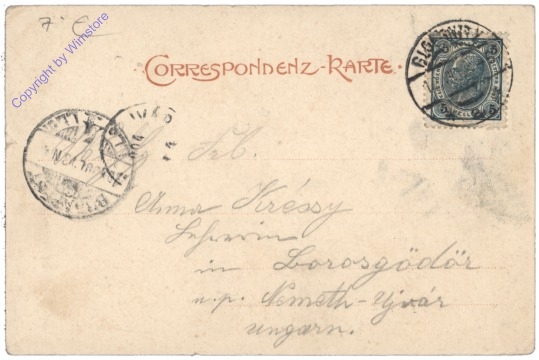 7.- E
Copyright by Winstore
CORRESPONDENZ-KARTE.
5 5
BUDAPEST
Frl.
Anna Kréssy
Lehrerin
in Borosgödör
u.p. Németh-Ujvár
Ungarn.